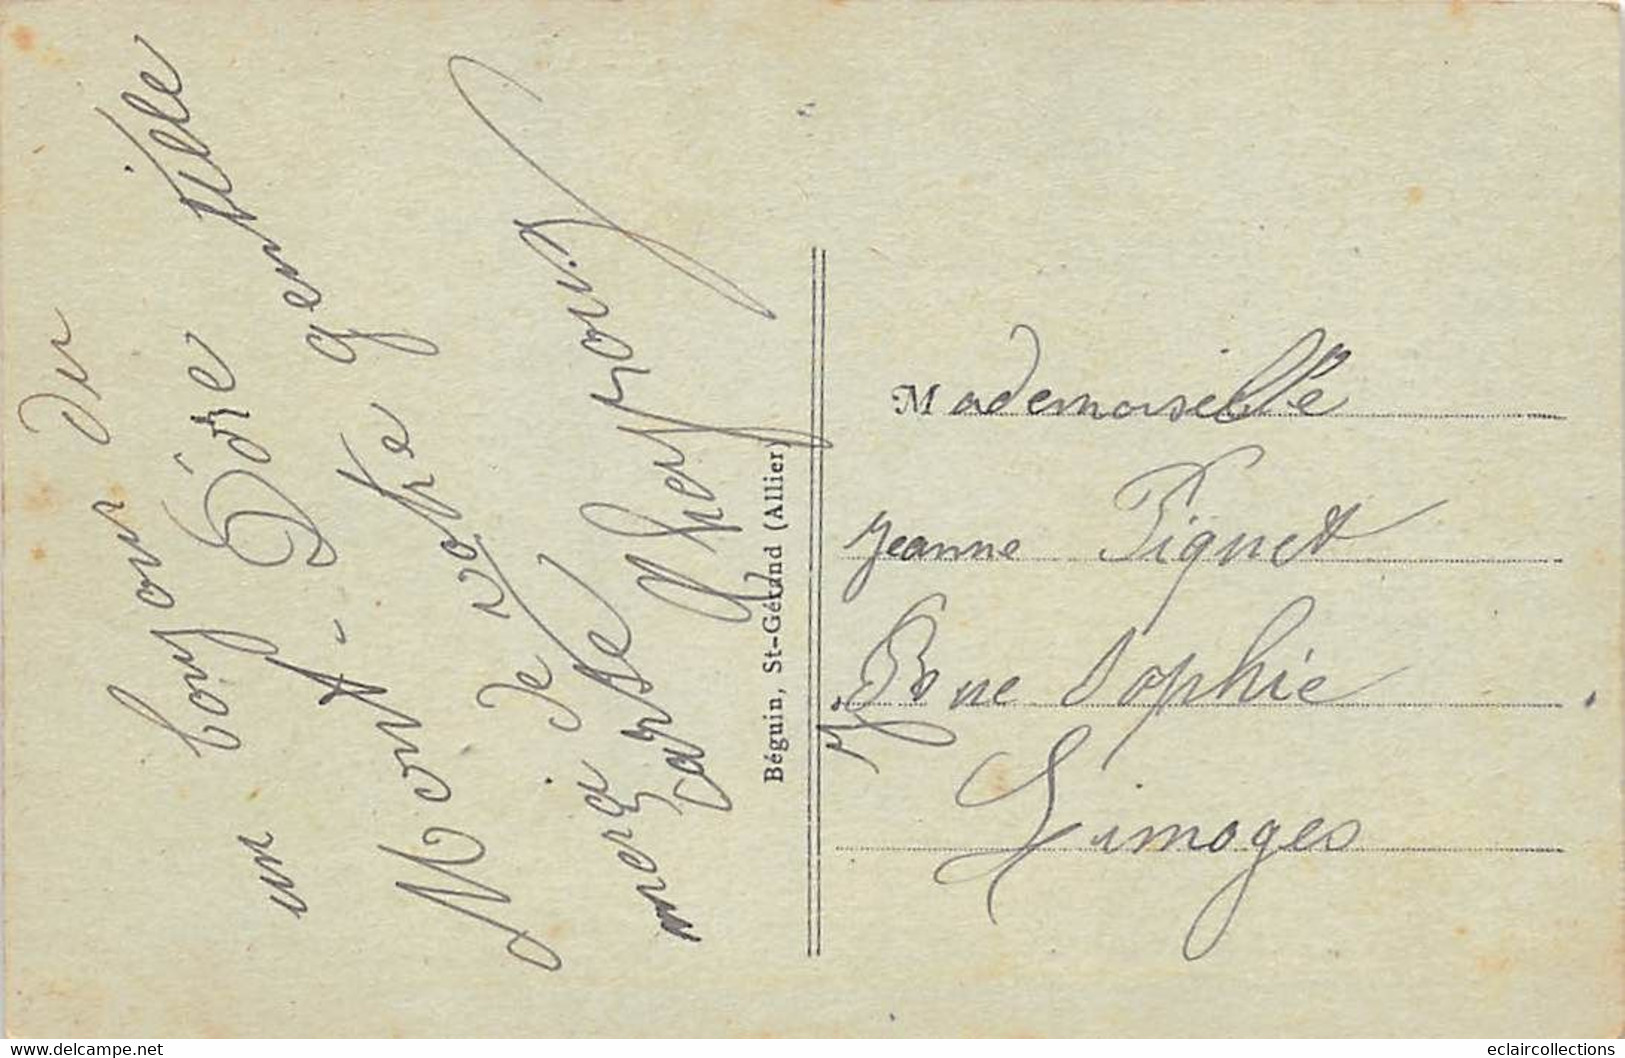 un bonjour du
Mont-Dore
merci de votre gentille
carte
Béguin, St-Gérand (Allier)
Mademoiselle
Jeanne Pignet
Rue Sophie
Limoges
www.delcampe.net
eclaircollections